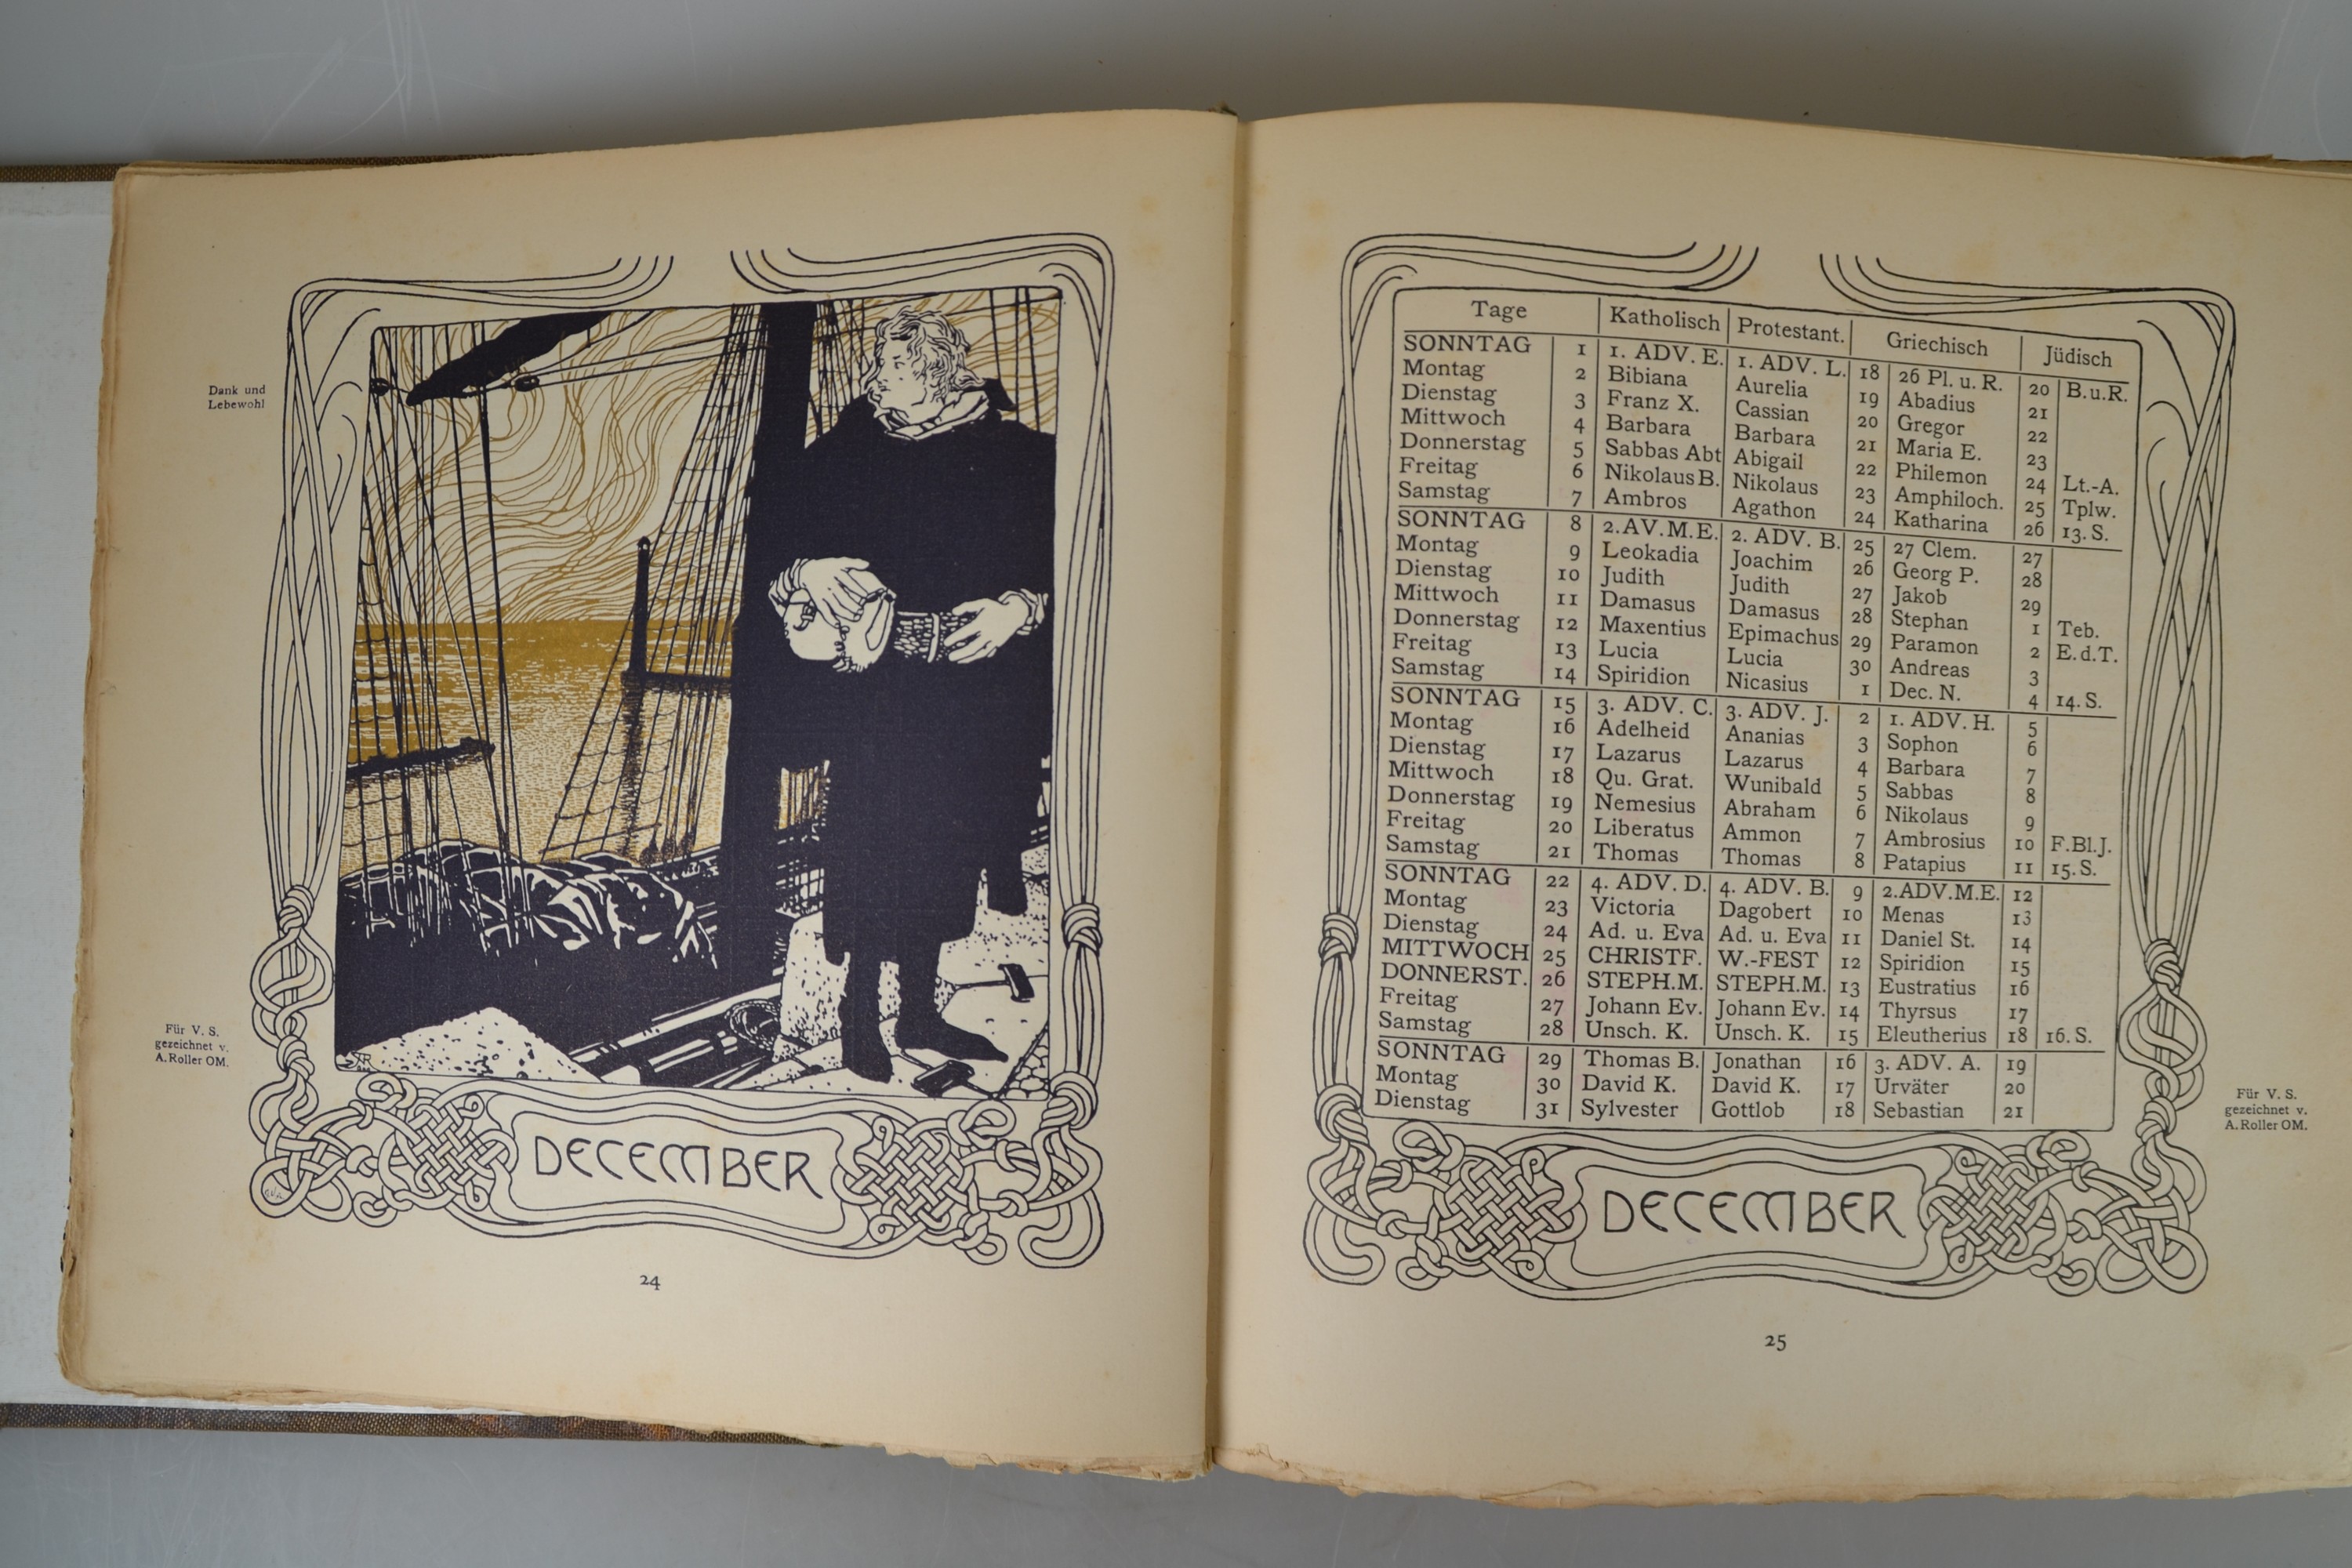 Dank und
Lebewohl
Für V. S.
gezeichnet v.
A. Roller OM.
AR
DECEMBER
24
Tage Katholisch Protestant. Griechisch Jüdisch
SONNTAG 1 1. ADV. E. 1. ADV. L. 18 26 Pl. u. R. 20 B.u.R.
Montag 2 Bibiana Aurelia 19 Abadius 21
Dienstag 3 Franz X. Cassian 20 Gregor 22
Mittwoch 4 Barbara Barbara 21 Maria E. 23
Donnerstag 5 Sabbas Abt Abigail 22 Philemon 24 Lt.-A.
Freitag 6 Nikolaus B. Nikolaus 23 Amphiloch. 25 Tplw.
Samstag 7 Ambros Agathon 24 Katharina 26 13. S.
SONNTAG 8 2. AV. M. E. 2. ADV. B. 25 27 Clem. 27
Montag 9 Leokadia Joachim 26 Georg P. 28
Dienstag 10 Judith Judith 27 Jakob 29
Mittwoch 11 Damasus Damasus 28 Stephan 1 Teb.
Donnerstag 12 Maxentius Epimachus 29 Paramon 2 E. d. T.
Freitag 13 Lucia Lucia 30 Andreas 3
Samstag 14 Spiridion Nicasius 1 Dec. N. 4 14. S.
SONNTAG 15 3. ADV. C. 3. ADV. J. 2 1. ADV. H. 5
Montag 16 Adelheid Ananias 3 Sophon 6
Dienstag 17 Lazarus Lazarus 4 Barbara 7
Mittwoch 18 Qu. Grat. Wunibald 5 Sabbas 8
Donnerstag 19 Nemesius Abraham 6 Nikolaus 9
Freitag 20 Liberatus Ammon 7 Ambrosius 10 F.Bl.J.
Samstag 21 Thomas Thomas 8 Patapius 11 15. S.
SONNTAG 22 4. ADV. D. 4. ADV. B. 9 2. ADV. M. E. 12
Montag 23 Victoria Dagobert 10 Menas 13
Dienstag 24 Ad. u. Eva Ad. u. Eva 11 Daniel St. 14
MITTWOCH 25 CHRISTF. W.-FEST 12 Spiridion 15
DONNERST. 26 STEPH.M. STEPH.M. 13 Eustratius 16
Freitag 27 Johann Ev. Johann Ev. 14 Thyrsus 17
Samstag 28 Unsch. K. Unsch. K. 15 Eleutherius 18 16. S.
SONNTAG 29 Thomas B. Jonathan 16 3. ADV. A. 19
Montag 30 David K. David K. 17 Urväter 20
Dienstag 31 Sylvester Gottlob 18 Sebastian 21
Für V. S.
gezeichnet v.
A. Roller OM.
DECEMBER
25